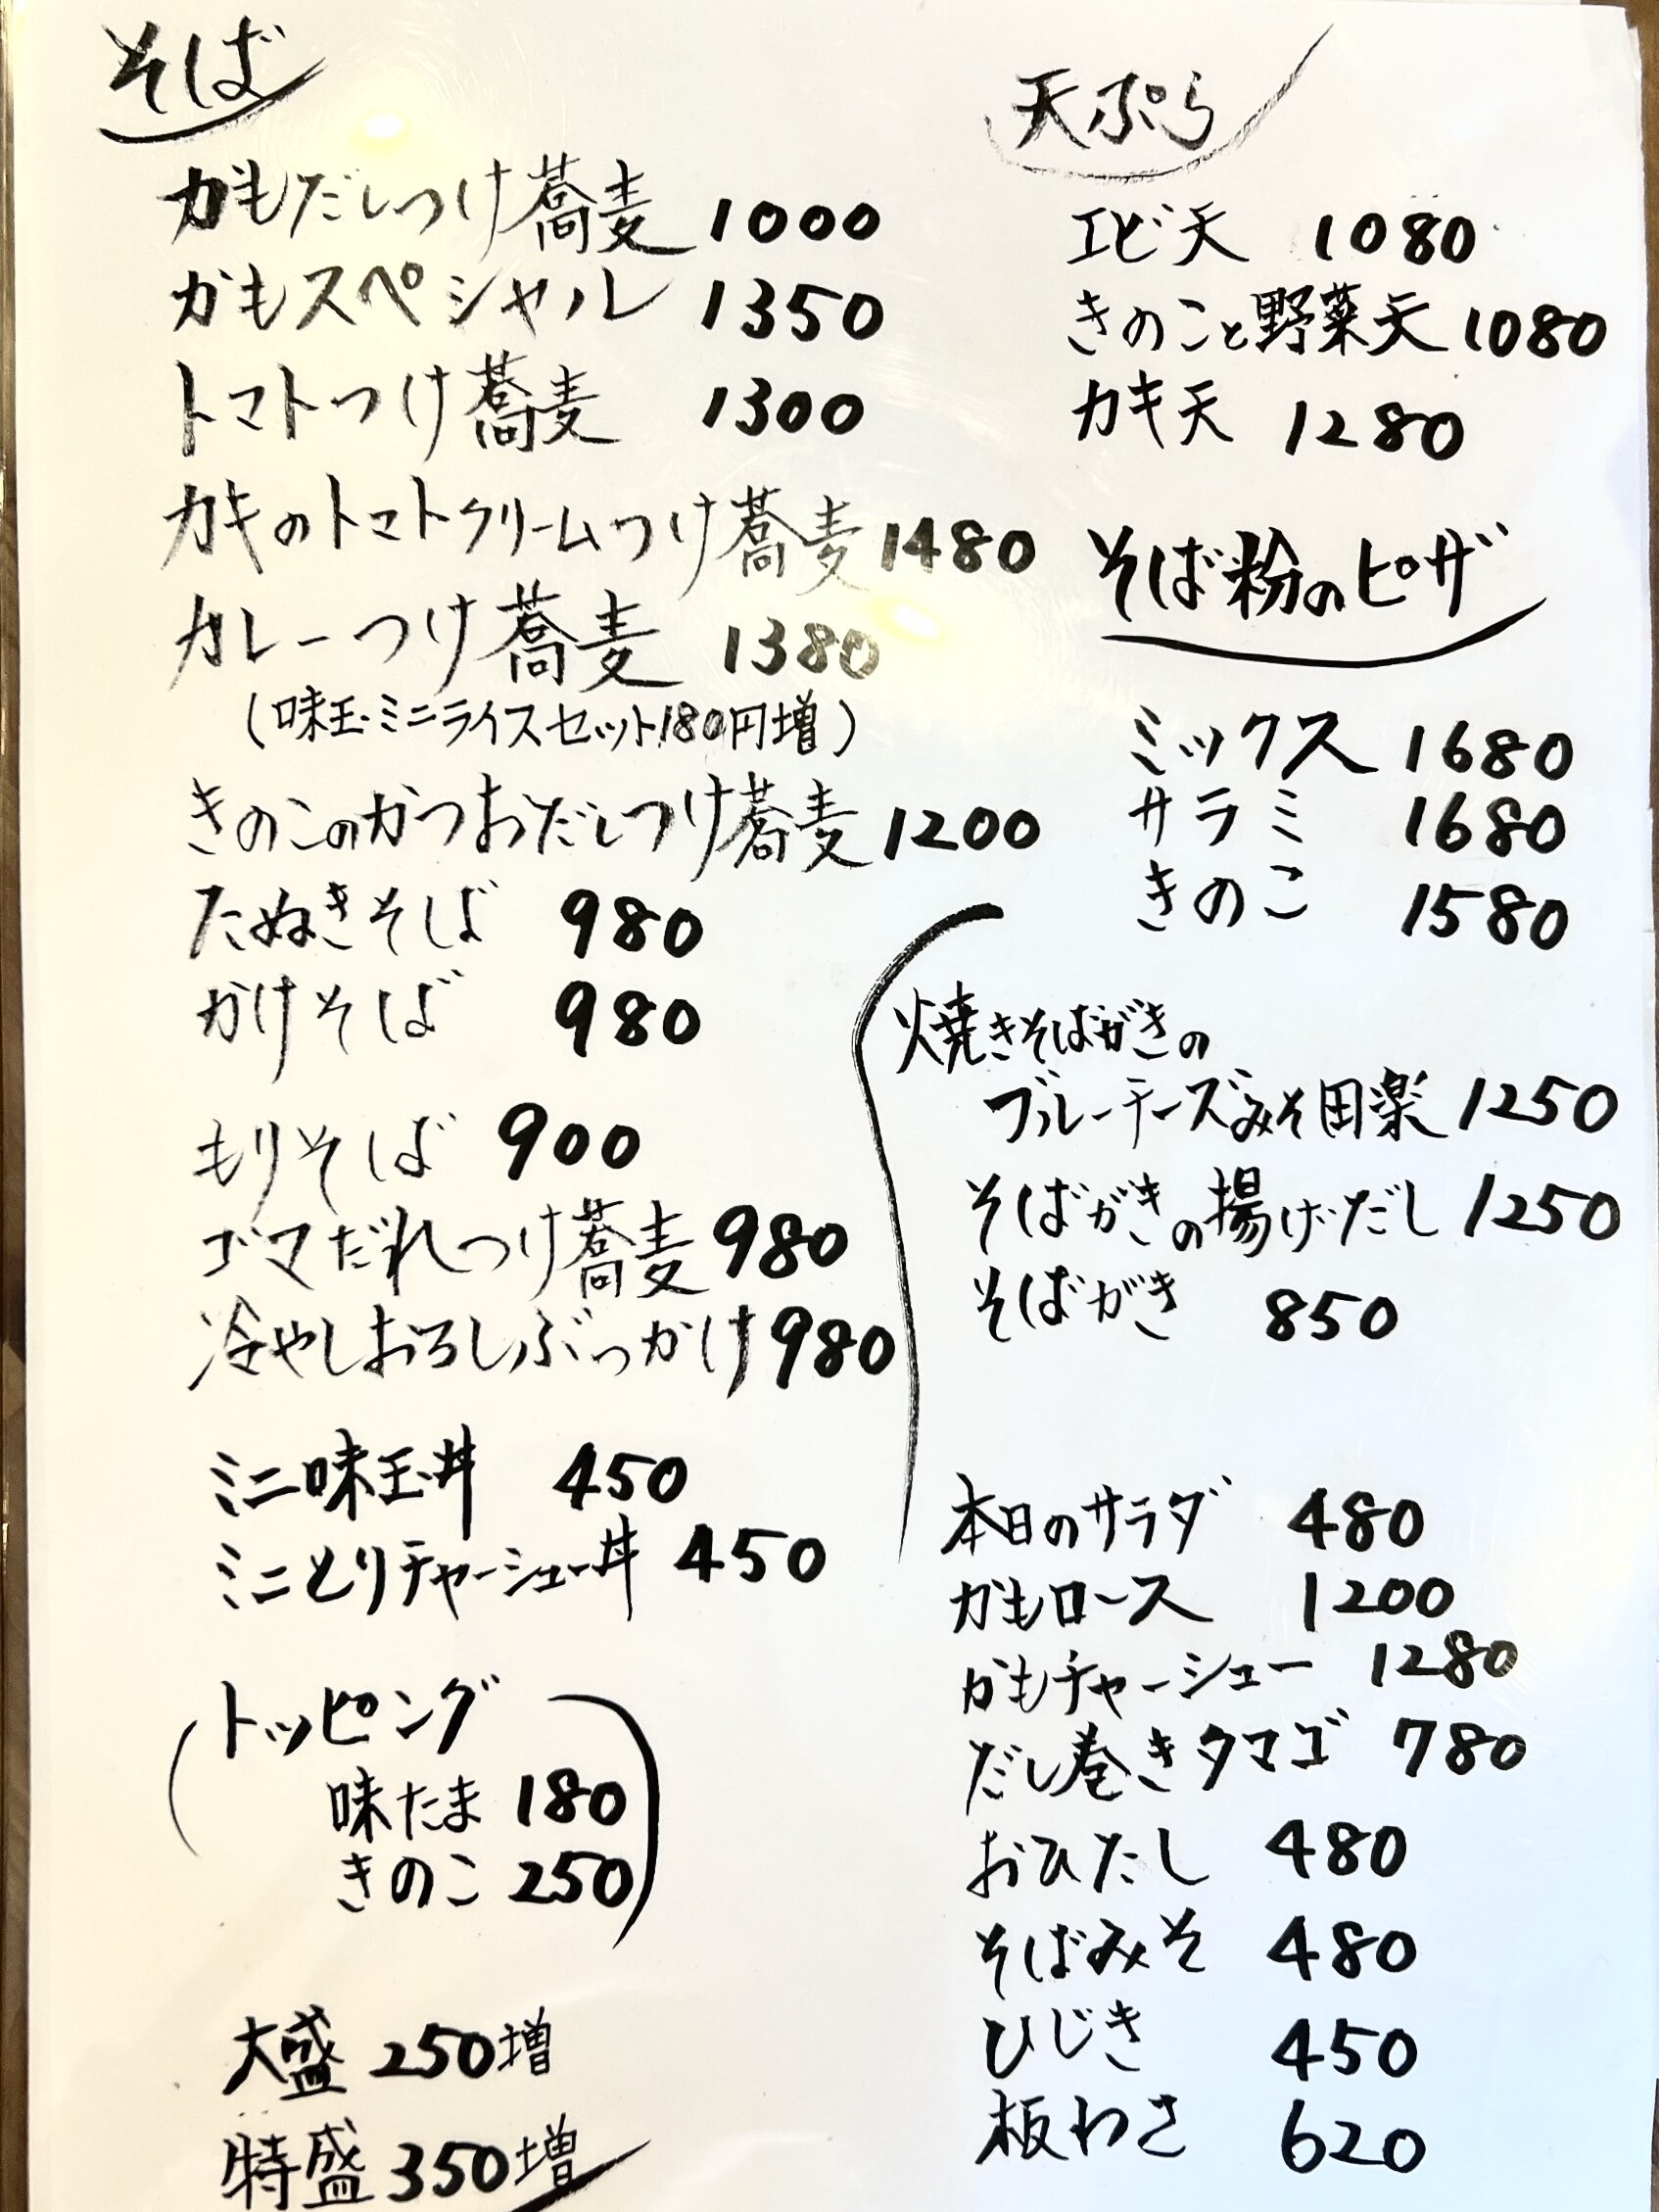 そば
かもだしつけ蕎麦 1000
かもスペシャル 1350
トマトつけ蕎麦 1300
カキのトマトクリームつけ蕎麦 1480
カレーつけ蕎麦 1380
(味玉・ミニライスセット180円増)
きのこのかつおだしつけ蕎麦 1200
たぬきそば 980
かけそば 980
もりそば 900
ゴマだれつけ蕎麦 980
冷やしおろしぶっかけ 980
ミニ味玉丼 450
ミニとりチャーシュー丼 450
トッピング
味たま 180
きのこ 250
大盛 250増
特盛 350増
天ぷら
エビ天 1080
きのこと野菜天 1080
カキ天 1280
そば粉のピザ
ミックス 1680
サラミ 1680
きのこ 1580
焼きそばがきの
ブルーチーズみそ田楽 1250
そばがきの揚げだし 1250
そばがき 850
本日のサラダ 480
かもロース 1200
かもチャーシュー 1280
だし巻きタマゴ 780
おひたし 480
そばみそ 480
ひじき 450
板わさ 620